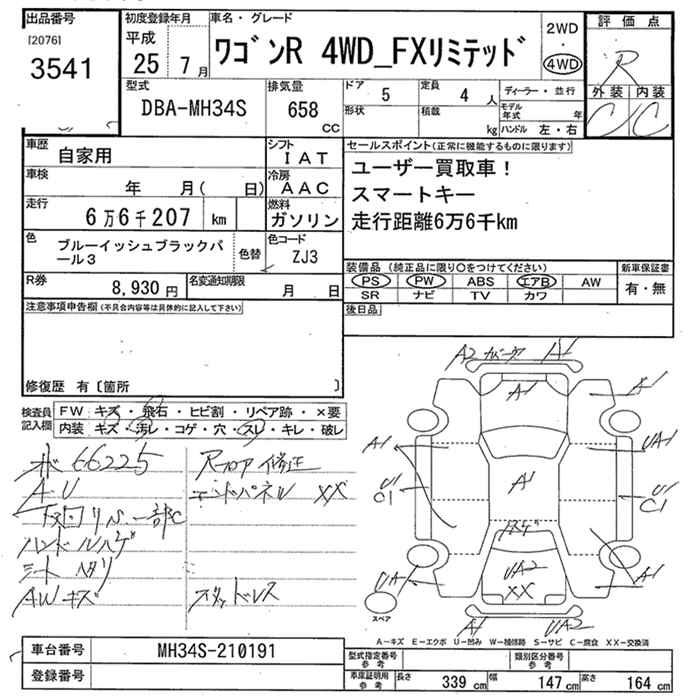 出品番号 初度登録年月 車名・グレード 評価点
[2076]
3541
平成
25 7月
ワゴンR 4WD_FXリミテッド
2WD
・
4WD
R
外装 内装
C C
型式 排気量 ドア 5 定員 4 人 ディーラー・並行
DBA-MH34S 658 CC
形状 積載 kg
モデル年式 年
ハンドル 左・右
車歴 自家用
シフト IAT
セールスポイント(正常に機能するものに限ります)
ユーザー買取車!
スマートキー
走行距離6万6千km
車検 年 月( 日)
冷房 AAC
走行 6万6千207 km
燃料 ガソリン
色 ブルーイッシュブラックパール3 色替
色コード ZJ3
装備品(純正品に限り○をつけてください) 新車保証書
PS PW ABS エアB AW 有・無
SR ナビ TV カワ
R券 8,930円 名変通知期限 月 日
後日品
注意事項申告欄(不具合内容等は具体的に記入して下さい)
修復歴 有〔箇所 〕
検査員記入欄
FW キズ・飛石・ヒビ割・リペア跡・×要
内装 キズ・汚レ・コゲ・穴・スレ・キレ・破レ
ホ 66225 Rフロア修正
AU エンドパネル XX
下回りサビ一部C
ハンドルハゲ
シートヘタリ
AWキズ
A2 A1
A1 A1
A1 UA1
U1 C1 A1 U1 C1
UA1 UA2 XX A1
A1 UA2
スペア
A-キズ E-エクボ U-凹み W-補修跡 S-サビ C-腐食 XX-交換済
車台番号 MH34S-210191
登録番号
型式指定番号 参考 類別区分番号 参考
車庫証明用 参考 長さ 339 cm 幅 147 cm 高さ 164 cm